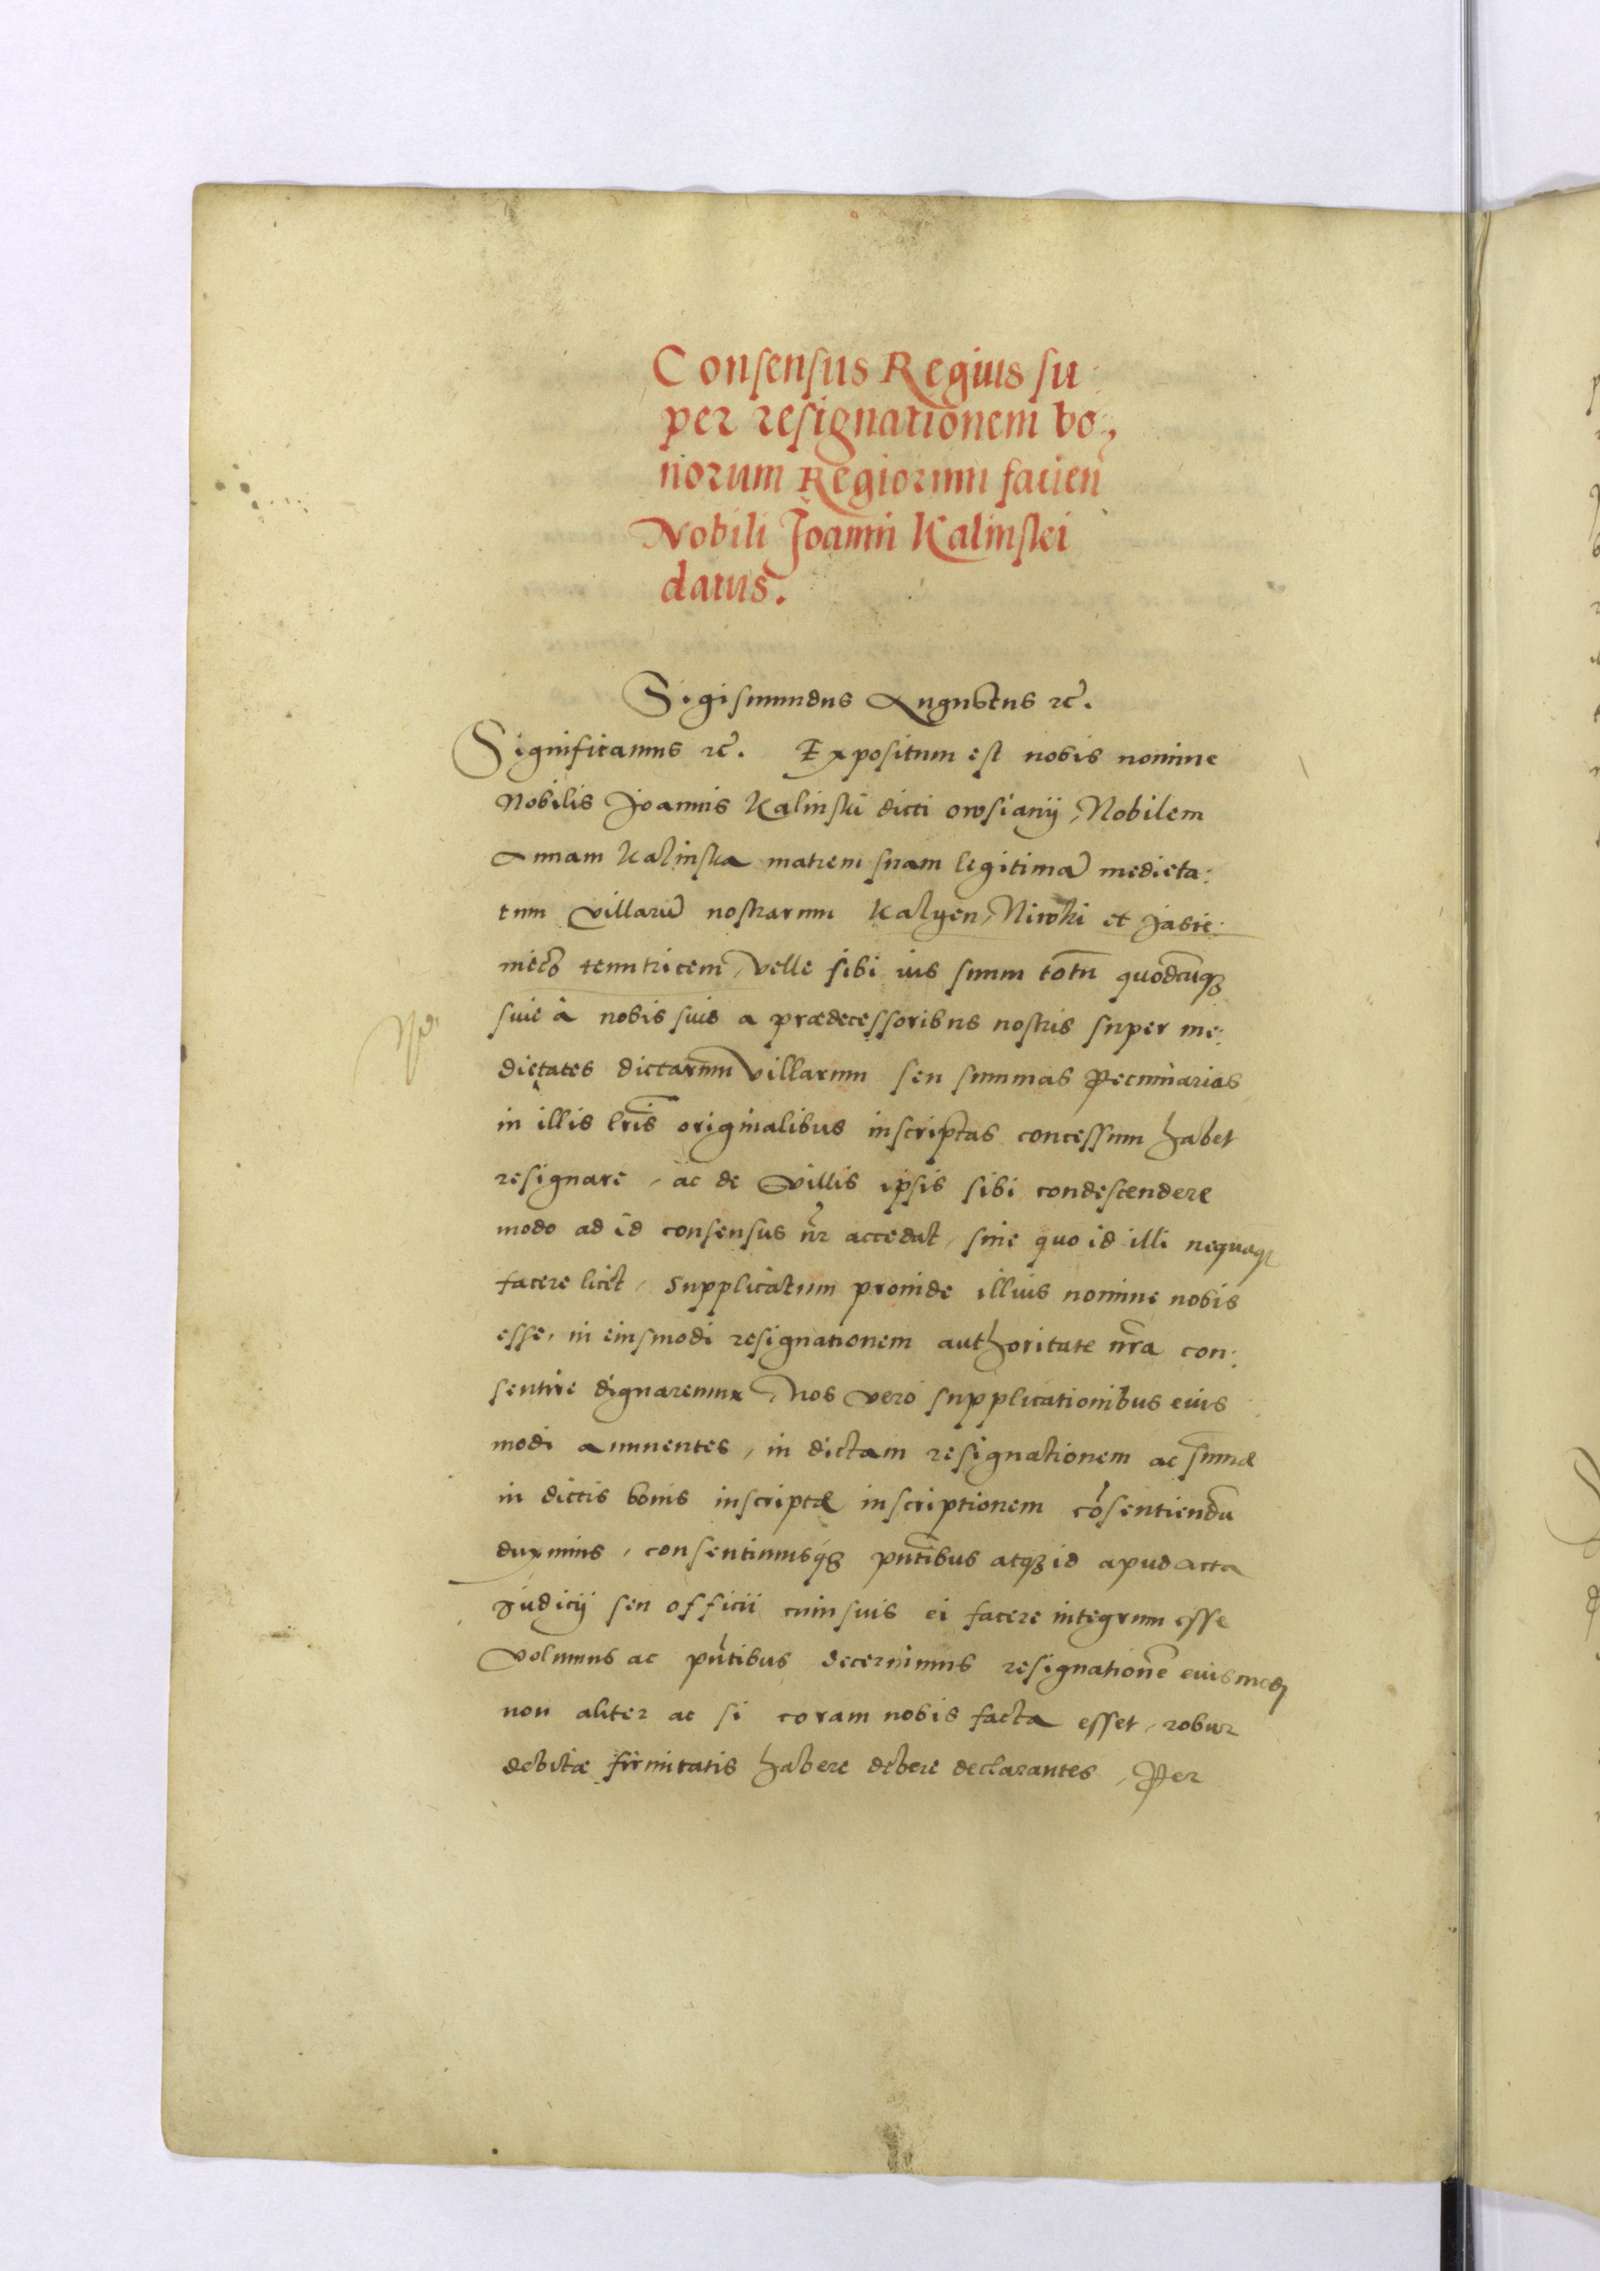 Consensus Regius su
per resignationem bo,
norum Regiorum facien̄
Nobili Joanni Kalinskei
datus.
Sigismundus Augustus rc̄.
Significamus rc̄. Expositum est nobis nomine
Nobilis Joannis Kalinski dicti orosianij, Nobilem
Annam Kalinska matrem suam legitimā medieta:
tum villarū nostrarum Kalyen, et Jasie:
tenutricem, velle sibi ius suum totū quodcūqȝ
siue à nobis siue a prædecessoribus nostris super me:
dietates dictarum villarum seu summas pecuniarias
in illis lr̄is originalibus inscriptas concessum habet
resignare, ac de villis ipsis sibi condescendere
modo ad id consensus nr̄ accedat, sine quo id illi nequaqȝ
facere licet, Supplicatum proinde illius nomine nobis
esse, in eiusmodi resignationem authoritate nr̄a con:
sentire dignaremur, Nos vero supplicationibus eius
modi annuentes, in dictam resignationem ac sum̄æ
in dictis bonis inscriptæ inscriptionem cōsentiendū
duximus, consentimusqȝ pn̄tibus atqȝ id apud acta
Judicij seu officii cuiusuis ei facere integrum esse
volumus ac pn̄tibus decernimus resignationē eiusmodj
non aliter ac si coram nobis facta esset, robur
debitæ firmitatis habere debere declarantes, Per